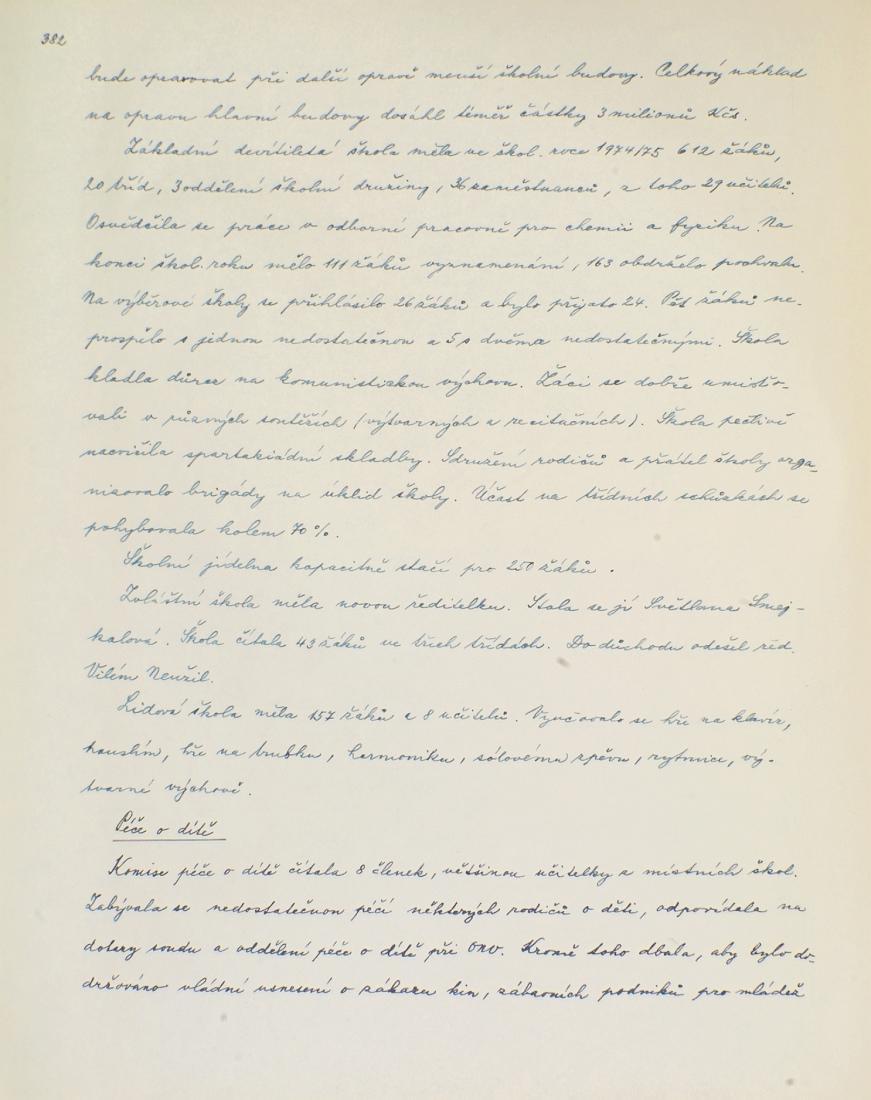 382
bude opravovat při další opravě menší školní budovy. Celkový náklad
na opravu hlavní budovy dosáhl téměř částky 3 milionů Kčs.
Základní devítiletá škola měla ve škol. roce 1974/75 612 žáků,
20 tříd, 3 oddělení školní družiny, 36 zaměstnanců, z toho 29 učitelů.
Osvědčila se práce v odborné pracovně pro chemii a fyziku. Na
konci škol. roku mělo 111 žáků vyznamenání, 163 obdrželo pochvalu.
Na výběrové školy se přihlásilo 26 žáků a bylo přijato 24. Pět žáků ne-
prospělo s jednou nedostatečnou a 5 s dvěma nedostatečnými. Škola
kladla důraz na komunistickou výchovu. Žáci se dobře umisťo-
vali v různých soutěžích (výtvarných a recitačních). Škola pečlivě
nacvičila spartakiádní skladby. Sdružení rodičů a přátel školy orga-
nizovalo brigády na úklid školy. Účast na třídních schůzkách se
pohybovala kolem 70 %.
Školní jídelna kapacitně stačí pro 250 žáků.
Zvláštní škola měla novou ředitelku. Stala se jí Světlana Smej-
kalová. Škola čítala 43 žáků ve třech třídách. Do důchodu odešel řed.
Vilém Neužil.
Lidová škola měla 157 žáků a 8 učitelů. Vyučovalo se hře na klavír,
houslím, hře na trubku, harmoniku, sólovému zpěvu, rytmice, vý-
tvarné výchově.
Péče o dítě
Komise péče o dítě čítala 8 členek, většinou učitelky z místních škol.
Zabývala se nedostatečnou péčí některých rodičů o děti, odpovídala na
dotazy soudu a oddělení péče o dítě při ONV. Kromě toho dbala, aby bylo do-
držováno vládní usnesení o zákazu kin, zábavních podniků pro mládež